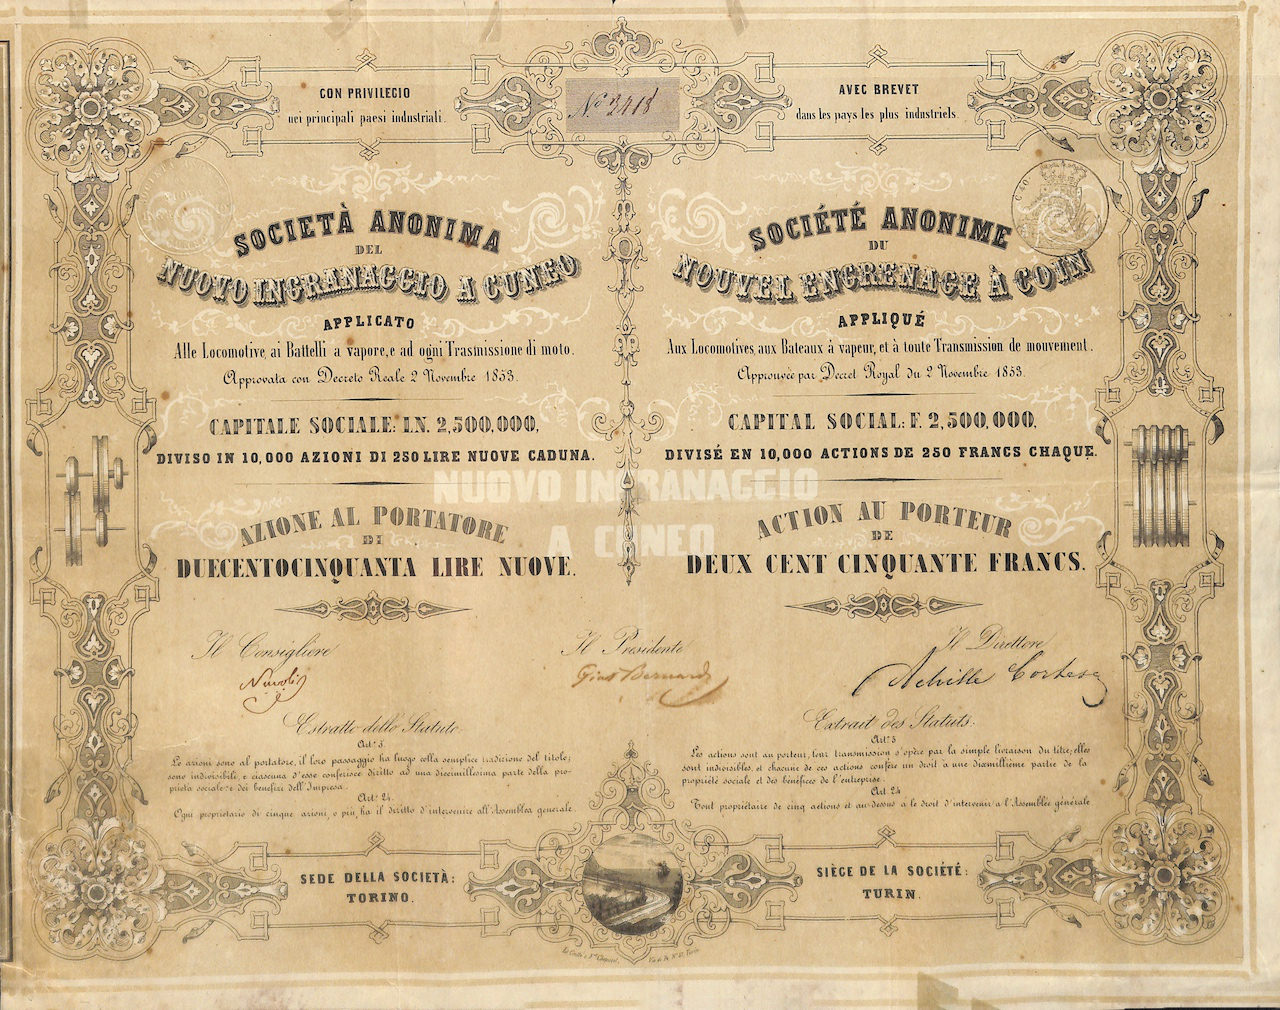 CON PRIVILEGIO
nei principali paesi industriali.
AVEC BREVET
dans les pays les plus industriels.
SOCIETÀ ANONIMA
DEL
NUOVO INGRANAGGIO A CUNEO
APPLICATO
Alle Locomotive, ai Battelli a vapore, e ad ogni Trasmissione di moto.
Approvata con Decreto Reale 2 Novembre 1853.
CAPITALE SOCIALE: L.N. 2,500,000,
DIVISO IN 10,000 AZIONI DI 250 LIRE NUOVE CADUNA.
AZIONE AL PORTATORE
DI
DUECENTOCINQUANTA LIRE NUOVE.
SOCIÉTÉ ANONIME
DU
NOUVEL ENGRENAGE À COIN
APPLIQUÉ
Aux Locomotives, aux Bateaux à vapeur, et à toute Transmission de mouvement.
Approuvée par Decret Royal du 2 Novembre 1853.
CAPITAL SOCIAL: F. 2,500,000,
DIVISÉ EN 10,000 ACTIONS DE 250 FRANCS CHAQUE.
ACTION AU PORTEUR
DE
DEUX CENT CINQUANTE FRANCS.
NUOVO INGRANAGGIO
A CUNEO
Il Consigliere
Il Presidente
Il Direttore
Achille Cortese
Estratto dello Statuto.
Art.º 5.
Le azioni sono al portatore, il loro passaggio ha luogo colla semplice tradizione del titolo;
sono indivisibili, e ciascuna d'esse conferisce diritto ad una diecimillesima parte della pro-
prietà sociale e dei benefizi dell'Impresa.
Art.º 24.
Ogni proprietario di cinque azioni, o più, ha il diritto d'intervenire all'Assemblea generale.
Extrait des Statuts.
Art.º 5
Les actions sont au porteur, leur transmission s'opère par la simple livraison du titre; elles
sont indivisibles, et chacune de ces actions confère un droit à une dixmillième partie de la
propriété sociale et des bénéfices de l'entreprise.
Art. 24
Tout propriétaire de cinq actions et au-dessus a le droit d'intervenir à l'Assemblée générale
SEDE DELLA SOCIETÀ:
TORINO.
SIÈGE DE LA SOCIÉTÉ:
TURIN.